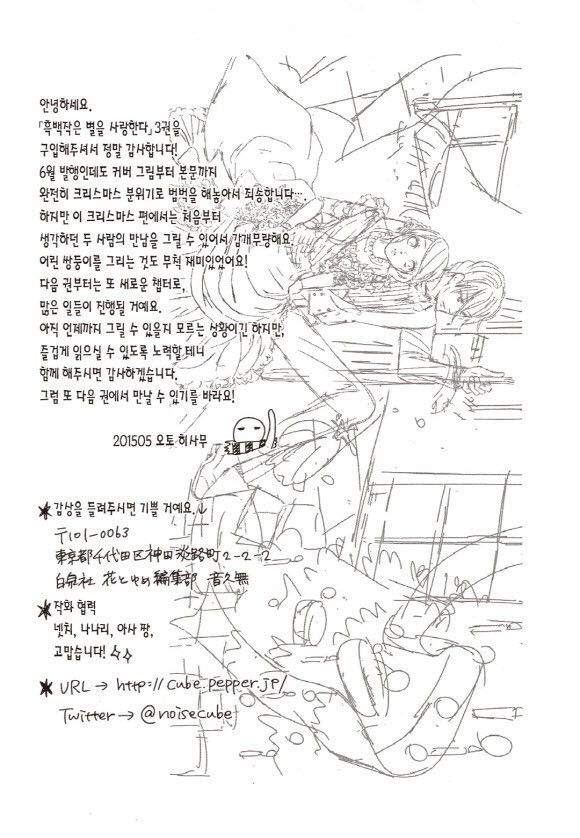 안녕하세요.
「흑백작은 별을 사랑한다」 3권을
구입해주셔서 정말 감사합니다!
6월 발행인데도 커버 그림부터 본문까지
완전히 크리스마스 분위기로 범벅을 해놓아서 죄송합니다….
하지만 이 크리스마스 편에서는 처음부터
생각하던 두 사람의 만남을 그릴 수 있어서 감개무량해요.
어린 쌍둥이를 그리는 것도 무척 재미있었어요!
다음 권부터는 또 새로운 챕터로,
많은 일들이 진행될 거예요.
아직 언제까지 그릴 수 있을지 모르는 상황이긴 하지만,
즐겁게 읽으실 수 있도록 노력할 테니
함께 해주시면 감사하겠습니다.
그럼 또 다음 권에서 만날 수 있기를 바라요!
201505 오토 히사무
★ 감상을 들려주시면 기쁠 거예요.↓
〒101-0063
東京都千代田区神田淡路町2-2-2
白泉社 花とゆめ編集部 音久無
★ 작화 협력
넷치, 나나리, 아사 짱,
고맙습니다! ☆☆
★ URL → http://cube.pepper.jp/
Twitter → @noisecube